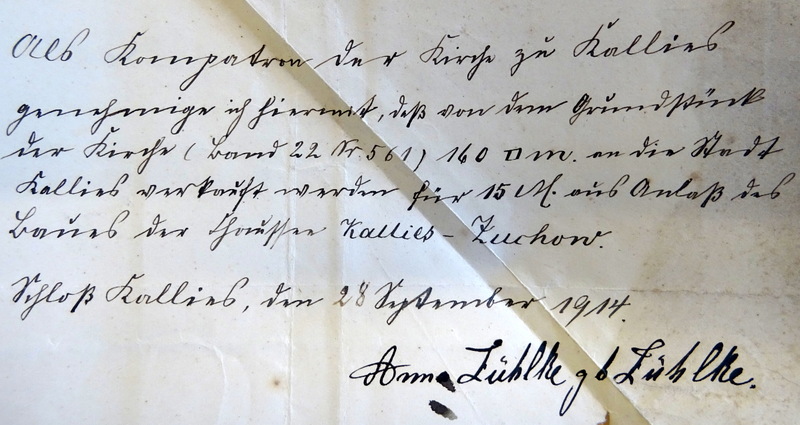 Als Kompatron der Kirche zu Kallies
genehmige ich hiermit, daß von dem Grundstück
der Kirche (Band 22 Nr. 561) 160 □m. an die Stadt
Kallies verkauft werden für 15 M. aus Anlaß des
Baues der Chaussee Kallies - Zuchow.
Schloß Kallies, den 28 September 1914.
Anna Lühlke gb Lühlke.